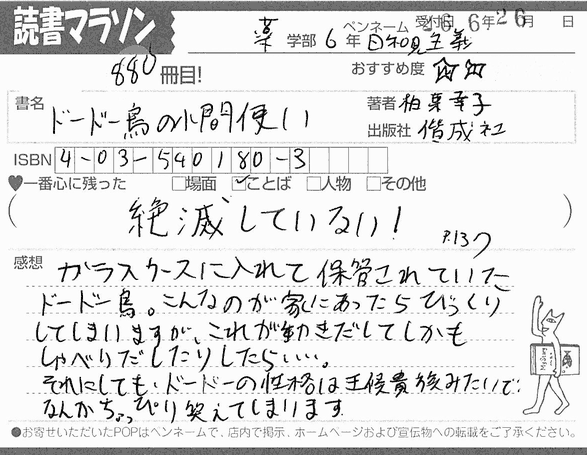 読書マラソン
薬 学部 6 年 ペンネーム 日和見主義
受付日 26年 6月 26日
880 冊目!
おすすめ度 ☆☆
書名 ドードー鳥の小間使い
著者 柏葉幸子
出版社 偕成社
ISBN 4-03-540180-3
♥一番心に残った □場面 ☑ことば □人物 □その他
(絶滅していない! P.137)
感想 ガラスケースに入れて保管されていた
ドードー鳥。こんなのが家にあったらびっくり
してしまいますが、これが動きだしてしかも
しゃべりだしたりしたら…。
それにしても、ドードーの性格は王侯貴族みたいで
なんかちょっぴり笑えてしまります
●お寄せいただいたPOPはペンネームで、店内で掲示、ホームページおよび宣伝物への転載をご了承ください。